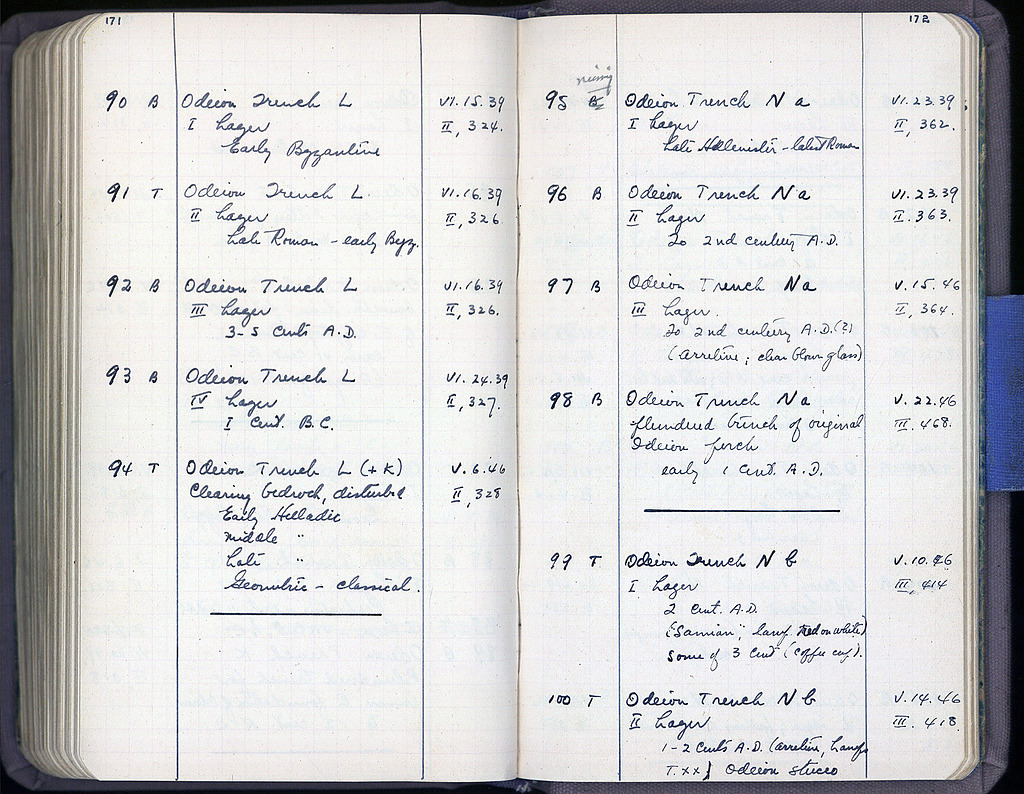 171
90 B Odeion Trench L VI.15.39
I Lager II, 324.
Early Byzantine
91 T Odeion Trench L. VI.16.39
II Lager II, 326.
Late Roman - early Byz.
92 B Odeion Trench L VI.16.39
III Lager II, 326.
3-5 cents A.D.
93 B Odeion Trench L VI.24.39
IV Lager II, 327.
I cent. B.C.
94 T Odeion Trench L (+ K) V.6.46
Clearing bedrock, disturbed II, 328
Early Helladic
Middle "
Late "
Geometric - classical.
172
missing
95 B Odeion Trench N a VI.23.39
I Lager II, 362.
Late Hellenistic - latest Roman
96 B Odeion Trench N a VI.23.39
II Lager II. 363.
To 2nd century A.D.
97 B Odeion Trench N a V.15.46
III Lager. II, 364.
To 2nd century A.D.(?)
(arretine; clear blown glass)
98 B Odeion Trench N a V.22.46
plundered trench of original III. 468.
Odeion porch
early 1 cent. A.D.
99 T Odeion Trench N b V.10.46
I Lager III, 414
2 cent. A.D.
("Samian", lamp. red on white)
some of 3 cent (coffee cup).
100 T Odeion Trench N b V.14.46
II Lager III. 418
1-2 cents A.D. (arretine, lamps
T. XX) Odeion stucco